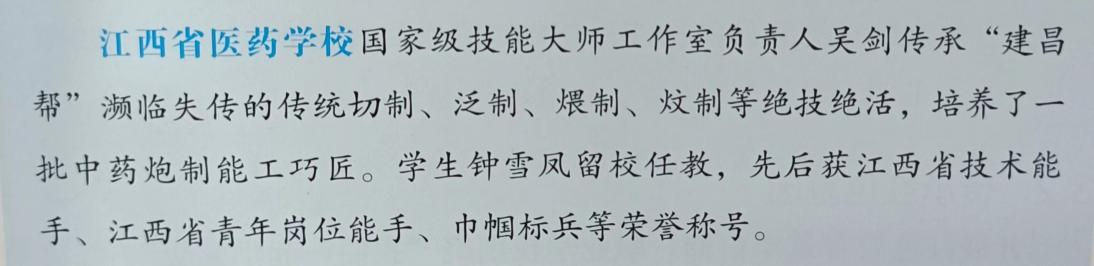 江西省医药学校国家级技能大师工作室负责人吴剑传承“建昌
帮”濒临失传的传统切制、泛制、煨制、炆制等绝技绝活，培养了一
批中药炮制能工巧匠。学生钟雪凤留校任教，先后获江西省技术能
手、江西省青年岗位能手、巾帼标兵等荣誉称号。